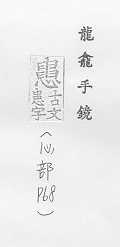 龍龕手鏡
古文
惠字
(心部
P68
)